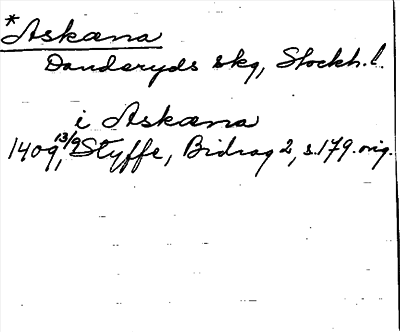 *Askæna
Danderyds skg, Stockh.l.
i Askæna
1409 13/9, Styffe, Bidrag 2, s.179. orig.